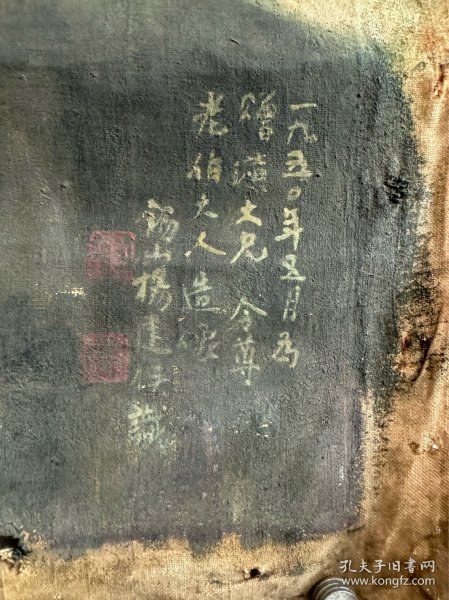 一九五〇年五月为
大兄 令尊
老伯大人造像
锡山楊建 識
孔夫子旧书网
www.kongfz.com